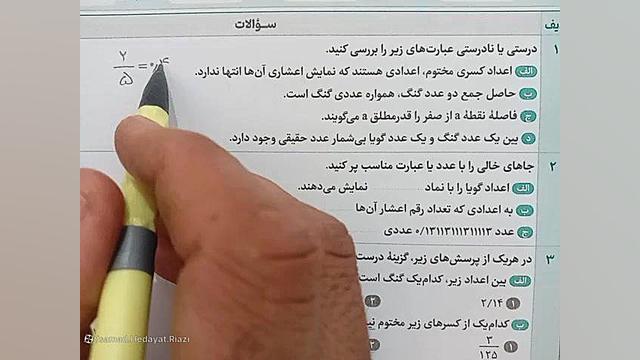 یف
سؤالات
۱ درستی یا نادرستی عبارت‌های زیر را بررسی کنید.
الف اعداد کسری مختوم، اعدادی هستند که نمایش اعشاری آن‌ها انتها ندارد.
ب حاصل جمع دو عدد گنگ، همواره عددی گنگ است.
ج فاصلهٔ نقطهٔ a از صفر را قدرمطلق a می‌گویند.
د بین یک عدد گنگ و یک عدد گویا بی‌شمار عدد حقیقی وجود دارد.
۲/۵ = ۰٫۴
۲ جاهای خالی را با عدد یا عبارت مناسب پر کنید.
الف اعداد گویا را با نماد نمایش می‌دهند.
ب به اعدادی که تعداد رقم اعشار آن‌ها
ج عدد ۰/۱۳۱۱۳۱۱۱۳۱۱۱۱۳ عددی
۳ در هریک از پرسش‌های زیر، گزینهٔ درست
الف بین اعداد زیر، کدام‌یک گنگ است
۱ ۲/۱۴ ۲
ب کدام‌یک از کسرهای زیر مختوم نی
۱ ۳/۱۲۵ ۲
samad.Hedayat.Riazi